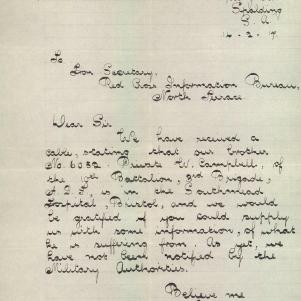 Spalding
S. A.
14-2-17.
To
Hon Secretary,
Red Cross Information Bureau,
North Terrace.
Dear Sir
We have received a
cable, stating that our brother
No. 6032. Private W. Campbell, of
the Battalion, 3rd Brigade,
A.I.F., is in the Southmead
Hospital, Bristol, and we would
be gratified if you could supply
us with some information, of what
he is suffering from. As yet, we
have not been notified by the
Military Authorities.
Believe me